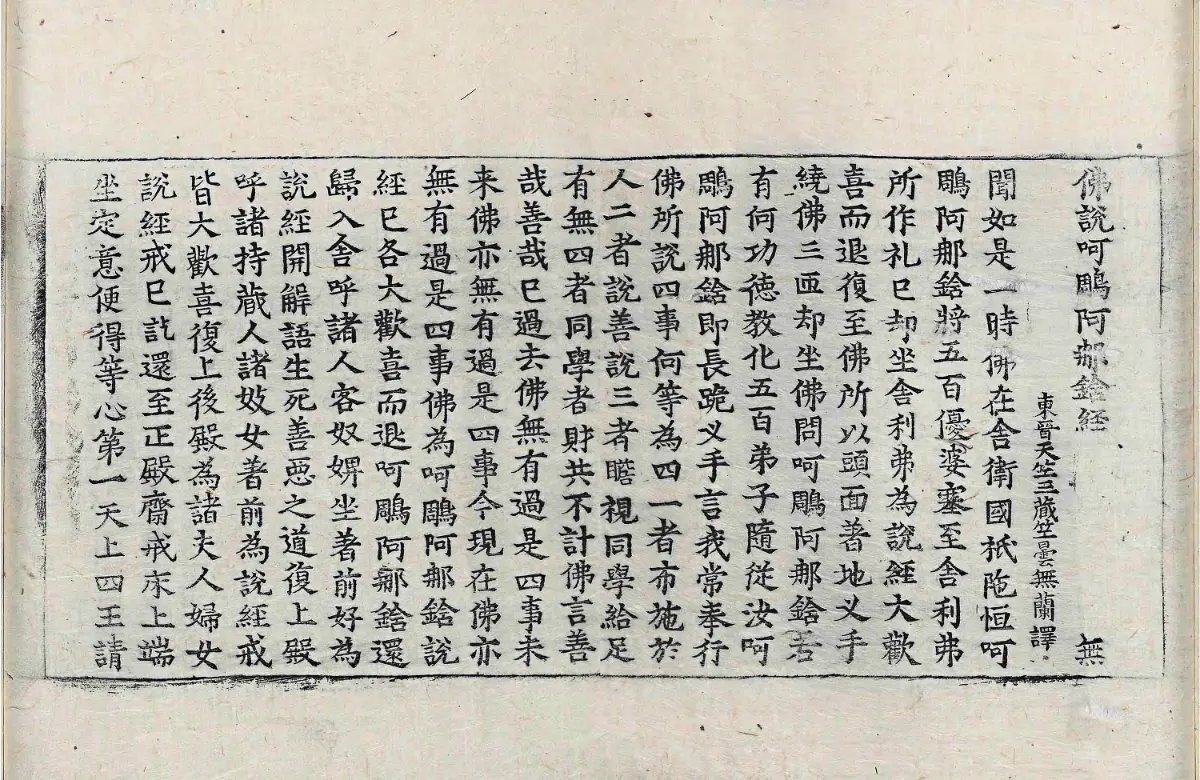 佛說呵鵰阿郍鋡經 無
東晉天竺三藏竺曇無蘭譯
聞如是一時佛在舍衛國祇陁恒呵
鵰阿郍鋡將五百優婆塞至舍利弗
所作礼已却坐舍利弗為說經大歡
喜而退復至佛所以頭面著地义手
繞佛三匝却坐佛問呵鵰阿郍鋡若
有何功德教化五百弟子隨從汝呵
鵰阿郍鋡即長跪义手言我常奉行
佛所說四事何等為四一者布施於
人二者說善說三者瞻視同學給足
有無四者同學者財共不計佛言善
哉善哉已過去佛無有過是四事未
来佛亦無有過是四事今現在佛亦
無有過是四事佛為呵鵰阿郍鋡說
經已各大歡喜而退呵鵰阿郍鋡還
歸入舍呼諸人客奴婢坐著前好為
說經開解語生死善惡之道復上殿
呼諸持藏人諸妓女著前為說經戒
皆大歡喜復上後殿為諸夫人婦女
說經戒已訖還至正殿齋戒床上端
坐定意便得等心第一天上四王請